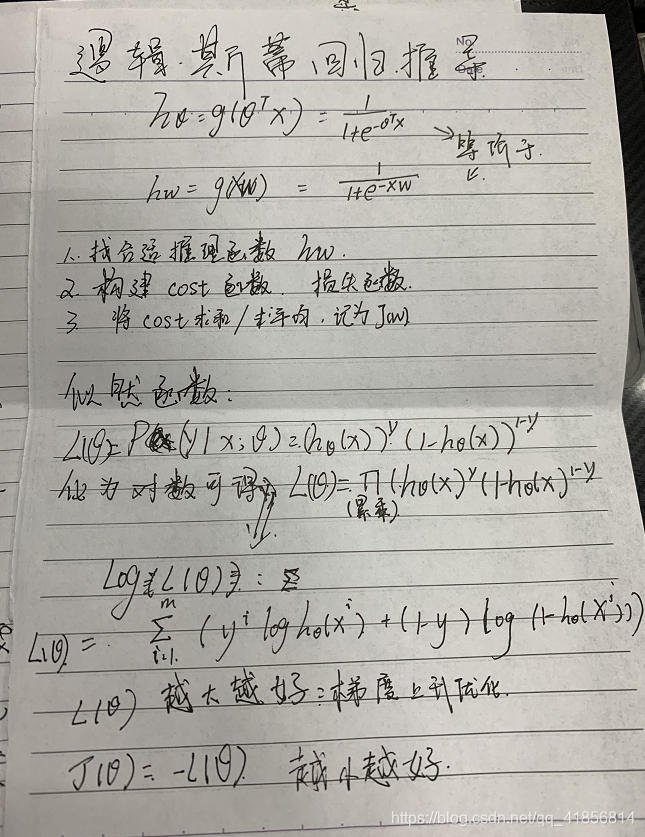 逻辑斯蒂回归推导
No
Date
hθ = g(θᵀx) = 1/(1+e^-θᵀx)
→ 等价于
hw = g(xw) = 1/(1+e^-xw)
1. 找合适推理函数 hw.
2. 构建 cost 函数. 损失函数.
3. 将 cost 求和/求平均. 记为 J(w)
似然函数:
L(θ) = P(y|x;θ) = (hθ(x))^y (1-hθ(x))^1-y
化为对数可得 L(θ) = Π (hθ(x)^y (1-hθ(x)^1-y
(累乘)
Log{L(θ)}: Σ
L(θ) = Σ_{i=1}^m (y^i log hθ(x^i) + (1-y) log (1-hθ(x^i)))
L(θ) 越大越好 = 梯度上升优化.
J(θ) = -L(θ) 越小越好.
https://blog.csdn.net/qq_41856814